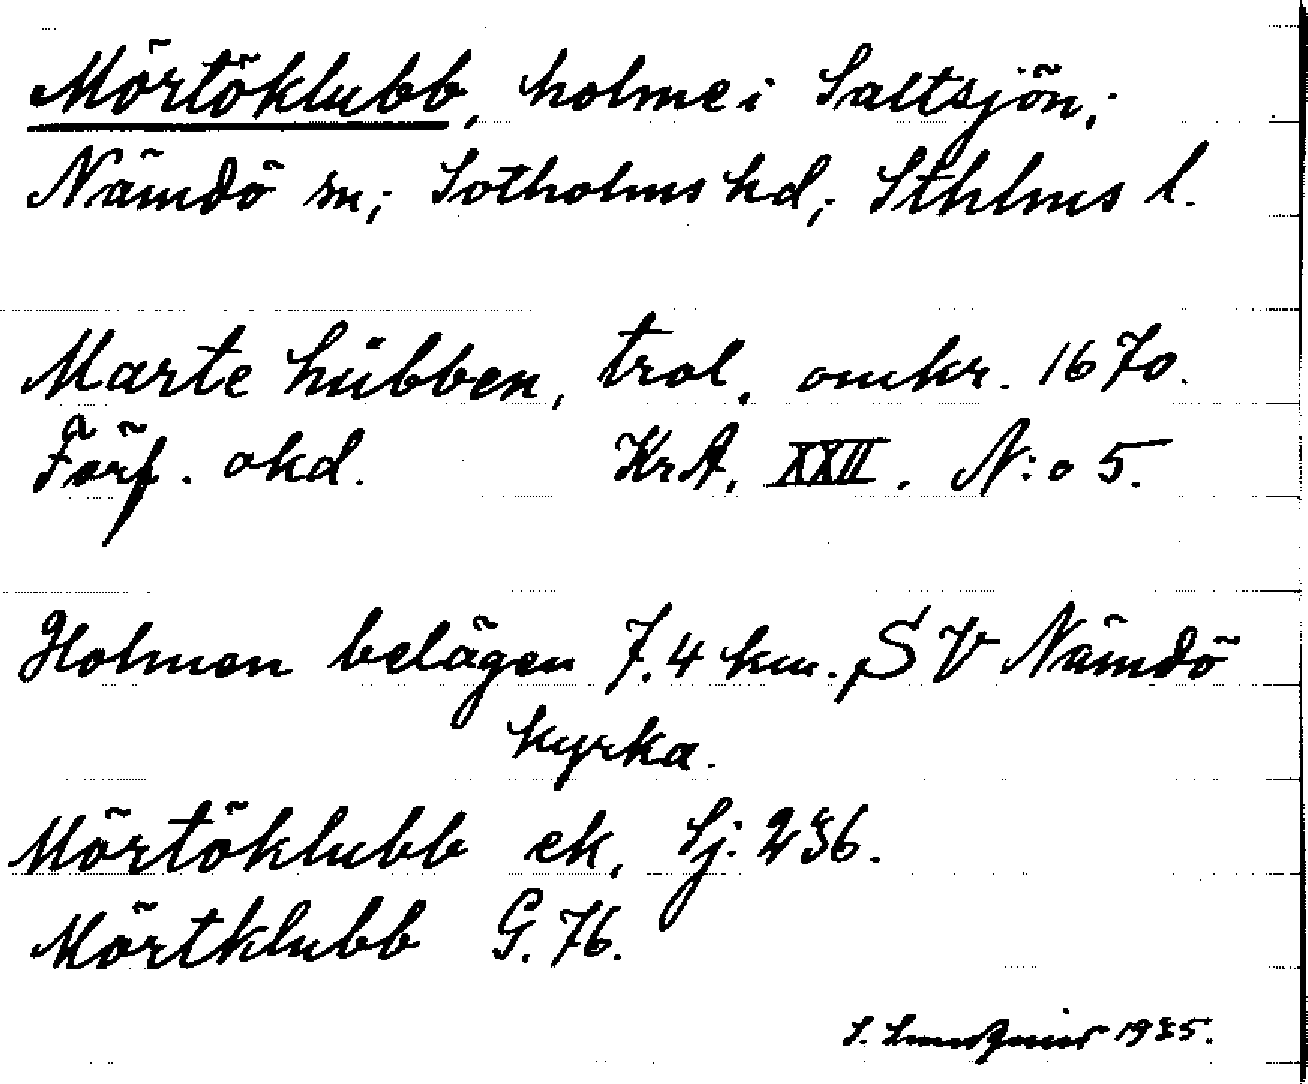 Mörtöklubb, holme i Saltsjön;
Nämdö sn; Sotholms hd; Sthlms l.
Marte hübben, trol. omkr. 1670.
Förf. okd. KrA. XXII. N:o 5.
Holmen belägen 7.4 km. SV Nämdö
kyrka.
Mörtöklubb ek. Sj. 236.
Mörtklubb G. 76.
S. Lundquist 1935.